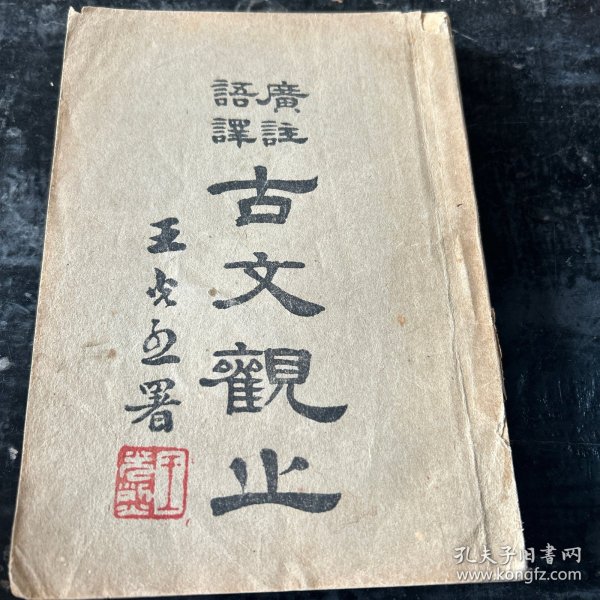 廣註
語譯
古文觀止
王光烈署
孔夫子旧書网
www.kongfz.com